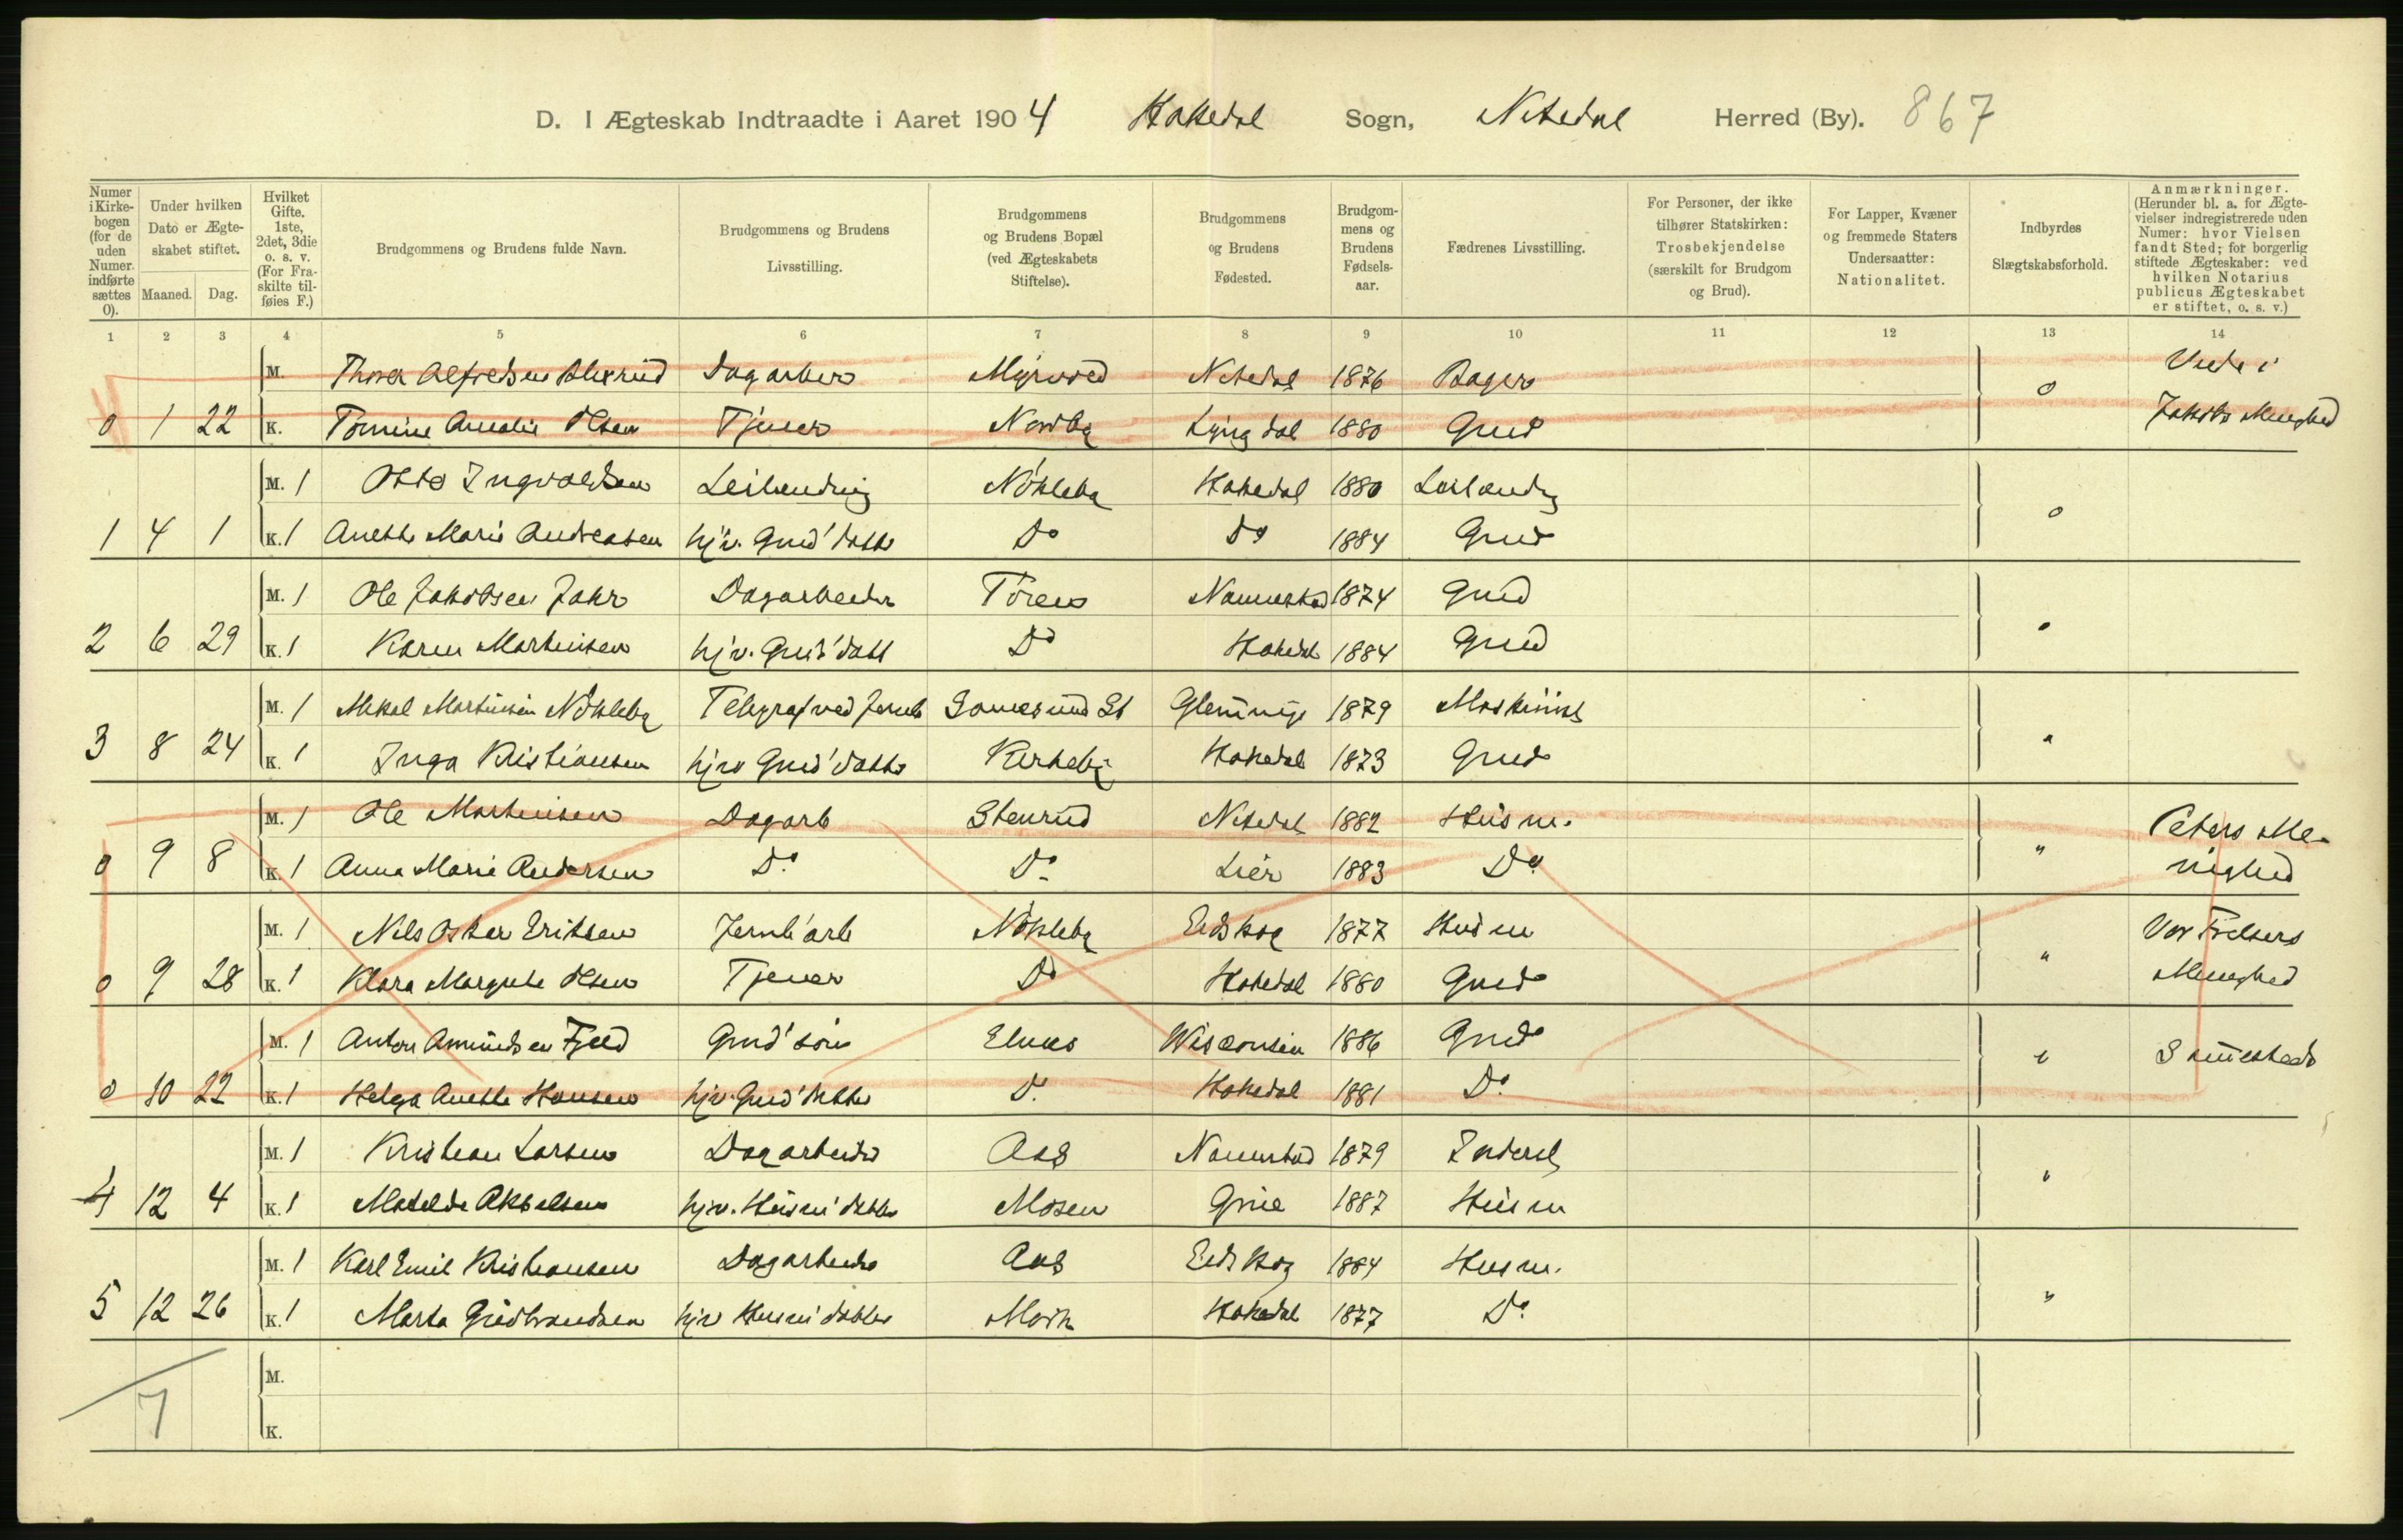 D. I Ægteskab Indtraadte i Aaret 1904 Hakedal Sogn, Nitedal Herred (By). 867
Numer i Kirkebogen (for de uden Numer indførte sættes 0).
Under hvilken Dato er Ægteskabet stiftet.
Maaned. Dag.
Hvilket Gifte. 1ste, 2det, 3die o. s. v. (For Fraskilte tilføies F.)
Brudgommens og Brudens fulde Navn.
Brudgommens og Brudens Livsstilling.
Brudgommens og Brudens Bopæl (ved Ægteskabets Stiftelse).
Brudgommens og Brudens Fødested.
Brudgommens og Brudens Fødselsaar.
Fædrenes Livsstilling.
For Personer, der ikke tilhører Statskirken: Trosbekjendelse (særskilt for Brudgom og Brud).
For Lapper, Kvæner og fremmede Staters Undersaatter: Nationalitet.
Indbyrdes Slægtskabsforhold.
Anmærkninger. (Herunder bl. a. for Ægtevielser indregistrerede uden Numer: hvor Vielsen fandt Sted; for borgerlig stiftede Ægteskaber: ved hvilken Notarius publicus Ægteskabet er stiftet, o. s. v.)
1 2 3 4 5 6 7 8 9 10 11 12 13 14
M. Alfredsen Dagarber Nitedal 1876 Bager Viede i
0 1 22 K. Amalie Olsen Tjener Nordby Lyngdal 1880 Grd 0 Jakobs Menghed
M. 1 Otto Ingvaldsen Leilending Nökleby Hakedal 1880 Leilending
1 4 1 K. 1 Anette Marie Andreasen hjv. Grd' datte Do Do 1884 Grd 0
M. 1 Ole Jakobsen Jahr Dagarbeider Nannestad 1874 Grd
2 6 29 K. 1 Karen Martinsen hjv. Grd' datt Do Hakedal 1884 Grd 0
M. 1 Mikal Martinsen Nökleby Telegraf ved Jernb St Glemminge 1879 Maskinist
3 8 24 K. 1 Inga Kristiansen hjv Grd' datte Kirkeby Hakedal 1873 Grd "
M. 1 Ole Martinsen Dagarb Stenrud Nitedal 1882 Husm. Peters Me-
0 9 8 K. 1 Anna Marie Andersen Do Do Lier 1883 Do " nighed
M. 1 Nils Oskar Eriksen Jernb'arb Nökleby Eidskog 1877 Husm Vor Frelsers
0 9 28 K. 1 Klara Margrete Olsen Tjener Do Hakedal 1880 Grd " Menghed
M. 1 Anton Amundsen Fjeld Grd' sön Elnes Wisconsin 1886 Grd
0 10 22 K. 1 Helga Anette Hansen hjv. Grd' datter Do Hakedal 1881 Do "
M. 1 Kristian Larsen Dagarbeider Aas Nannestad 1879 Inderst
4 12 4 K. 1 Matilde Akselsen hjv. Husm' datter Mosen Grue 1887 Husm "
M. 1 Karl Emil Kristiansen Dagarbeider Aas Eidskog 1884 Husm.
5 12 26 K. 1 Marta Gudbrandsen hjv Husm' datter Moen Hakedal 1877 Do "
M.
7 K.